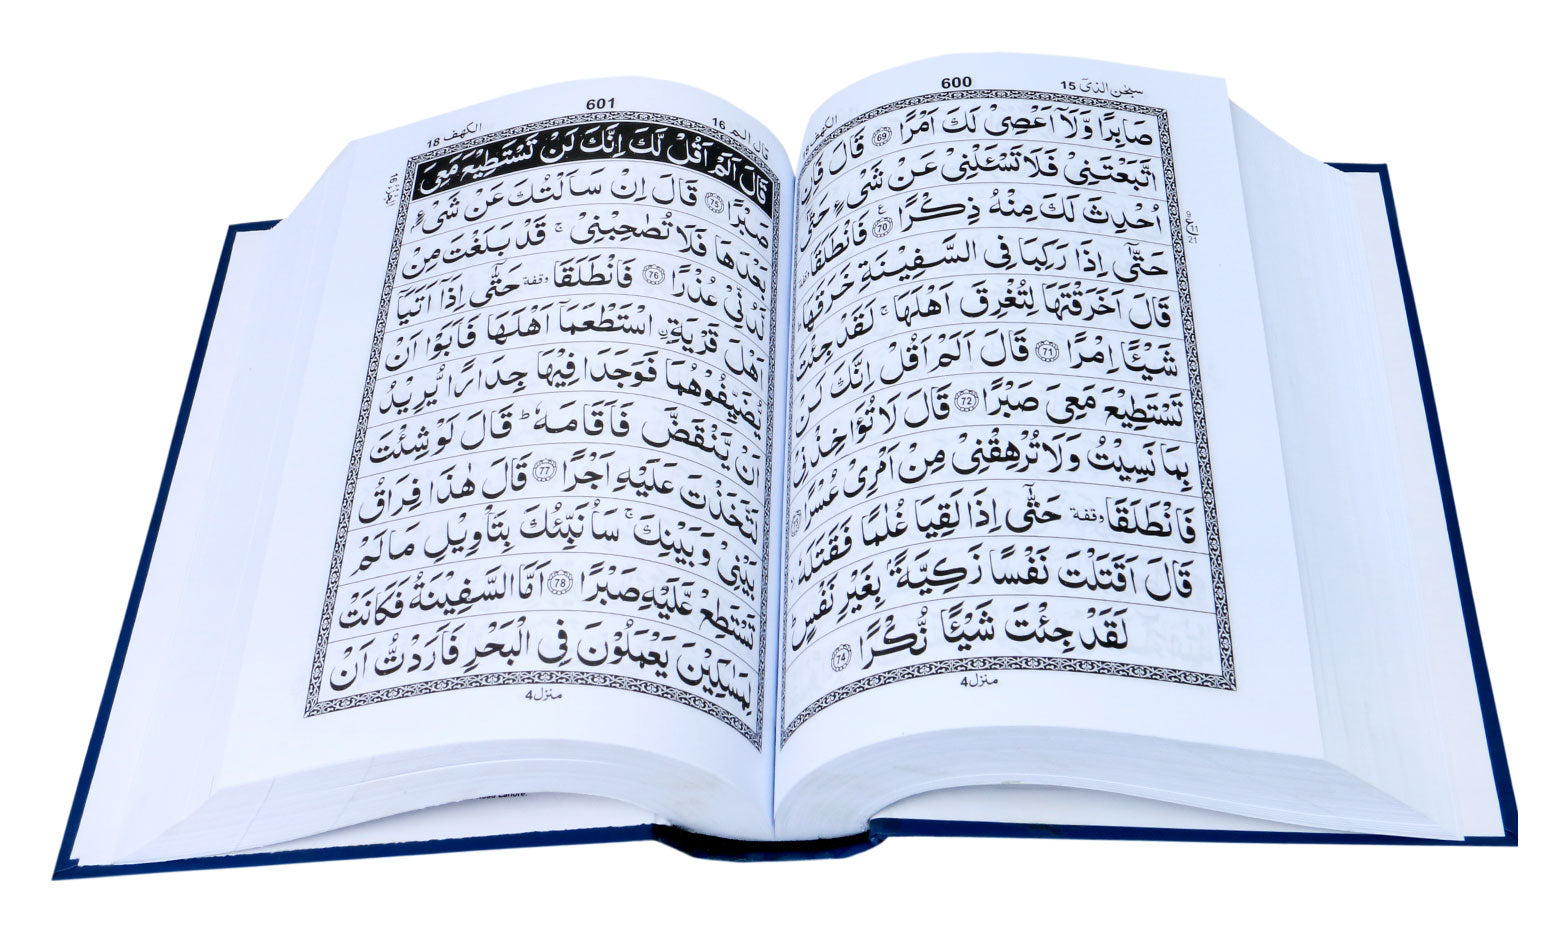 سبحن الذی 15
600
الكهف 18
صَابِرًا وَّلَاۤ اَعْصِیْ لَكَ اَمْرًا 69 قَالَ فَاِنِ
اتَّبَعْتَنِیْ فَلَا تَسْـَٔلْنِیْ عَنْ شَیْءٍ حَتّٰۤی
اُحْدِثَ لَكَ مِنْهُ ذِكْرًا 70 ع فَانْطَلَقَا وقفة
حَتّٰۤی اِذَا رَكِبَا فِی السَّفِیْنَةِ خَرَقَهَا ؕ
قَالَ اَخَرَقْتَهَا لِتُغْرِقَ اَهْلَهَا ۚ لَقَدْ جِئْتَ
شَیْـًٔا اِمْرًا 71 قَالَ اَلَمْ اَقُلْ اِنَّكَ لَنْ
تَسْتَطِیْعَ مَعِیَ صَبْرًا 72 قَالَ لَا تُؤَاخِذْنِیْ
بِمَا نَسِیْتُ وَلَا تُرْهِقْنِیْ مِنْ اَمْرِیْ عُسْرًا 73
فَانْطَلَقَا وقفة حَتّٰۤی اِذَا لَقِیَا غُلٰمًا فَقَتَلَهٗ ۙ
قَالَ اَقَتَلْتَ نَفْسًا زَكِیَّةًۢ بِغَیْرِ نَفْسٍ ؕ
لَقَدْ جِئْتَ شَیْـًٔا نُّكْرًا 74
منزل 4
ع
9
11
21
قال الم 16
601
الكهف 18
قَالَ اَلَمْ اَقُلْ لَّكَ اِنَّكَ لَنْ تَسْتَطِیْعَ مَعِیَ
صَبْرًا 75 قَالَ اِنْ سَاَلْتُكَ عَنْ شَیْءٍۭ
بَعْدَهَا فَلَا تُصٰحِبْنِیْ ۚ قَدْ بَلَغْتَ مِنْ
لَّدُنِّیْ عُذْرًا 76 فَانْطَلَقَا وقفة حَتّٰۤی اِذَاۤ اَتَیَاۤ
اَهْلَ قَرْیَةِ ۟اسْتَطْعَمَاۤ اَهْلَهَا فَاَبَوْا اَنْ
یُّضَیِّفُوْهُمَا فَوَجَدَا فِیْهَا جِدَارًا یُّرِیْدُ
اَنْ یَّنْقَضَّ فَاَقَامَهٗ ؕ قَالَ لَوْ شِئْتَ
لَتَّخَذْتَ عَلَیْهِ اَجْرًا 77 قَالَ هٰذَا فِرَاقُ
بَیْنِیْ وَبَیْنِكَ ۚ سَاُنَبِّئُكَ بِتَاْوِیْلِ مَا لَمْ
تَسْتَطِعْ عَّلَیْهِ صَبْرًا 78 اَمَّا السَّفِیْنَةُ فَكَانَتْ
لِمَسٰكِیْنَ یَعْمَلُوْنَ فِی الْبَحْرِ فَاَرَدْتُّ اَنْ
منزل 4
Lahore.